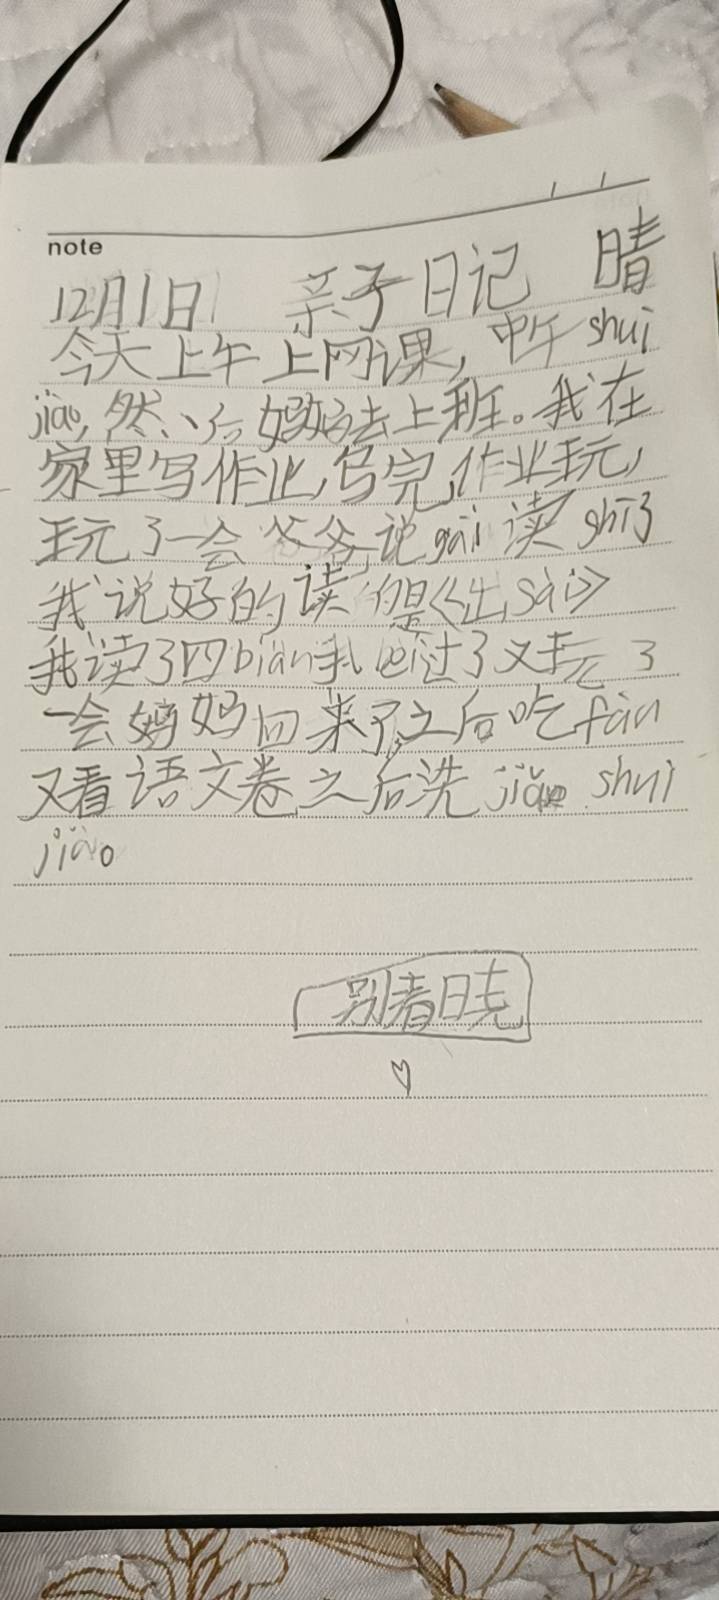 note
12月1日 亲子日记 晴
今天上午上网课，中午shui
jiao，然后妈妈去上班。我在
家里写作业，写完作业玩，
玩了一会爷爷说gāi读shī了
我说好的读的是《出sài》
我读了四biàn我 过了又玩了
一会妈妈回来了之后吃fàn
又看语文卷之后洗jiǎo shuì
jiào。
别着日